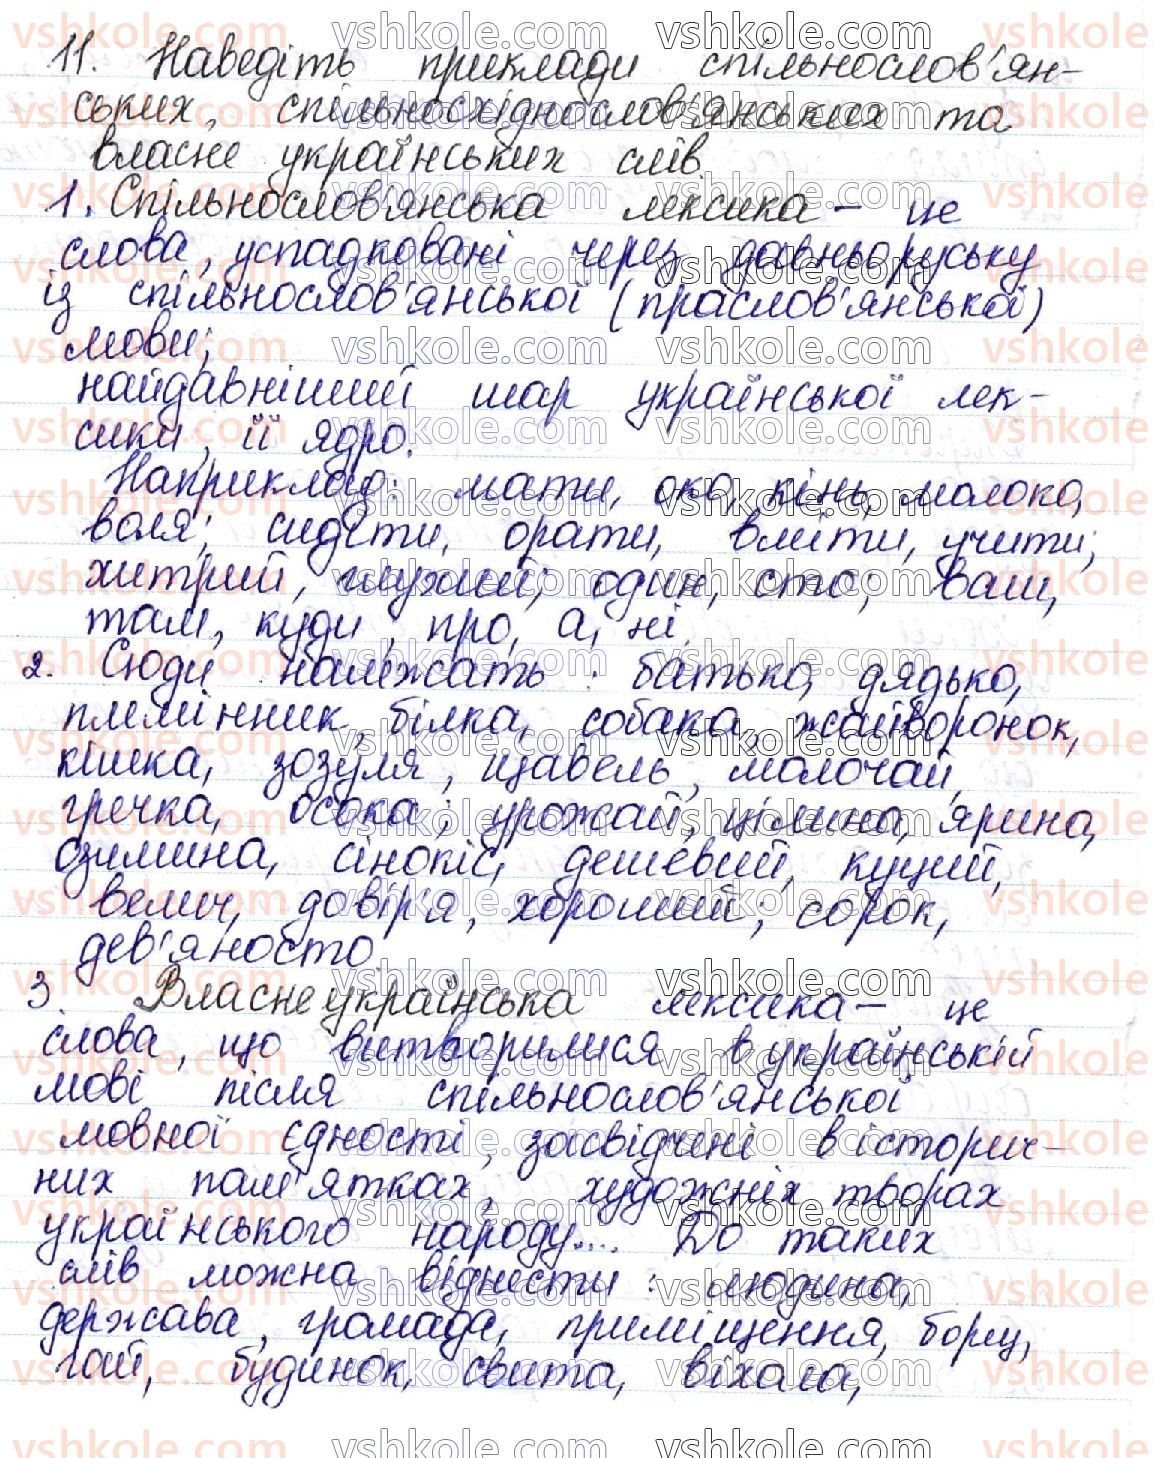 11. Наведіть приклади спільнослов'ян-
ських, спільносхіднослов'янських та
власне українських слів.
1. Спільнослов'янська лексика – це
слова, успадковані через давньоруську
із спільнослов'янської (праслов'янської)
мови;
найдавніший шар української лек-
сики, її ядро.
Наприклад: мати, око, кінь, молоко,
воля; сидіти, орати, вміти, учити;
хитрий, глухий; один, сто; ваш,
там, куди, про, а, ні.
2. Сюди належать: батько, дядько,
племінник, білка, собака, жайворонок,
кішка, зозуля, щавель, молочай,
гречка, осока; урожай, цілина, ярина,
озимина, сінокіс, дешевий, куций,
велич, довір'я, хороший; сорок,
дев'яносто
3. Власне українська лексика – це
слова, що витворилися в українській
мові після спільнослов'янської
мовної єдності, засвідчені в історич-
них пам'ятках, художніх творах
українського народу.... До таких
слів можна віднести: людина,
держава, громада, приміщення, борщ,
гай, будинок, свита, віхала,